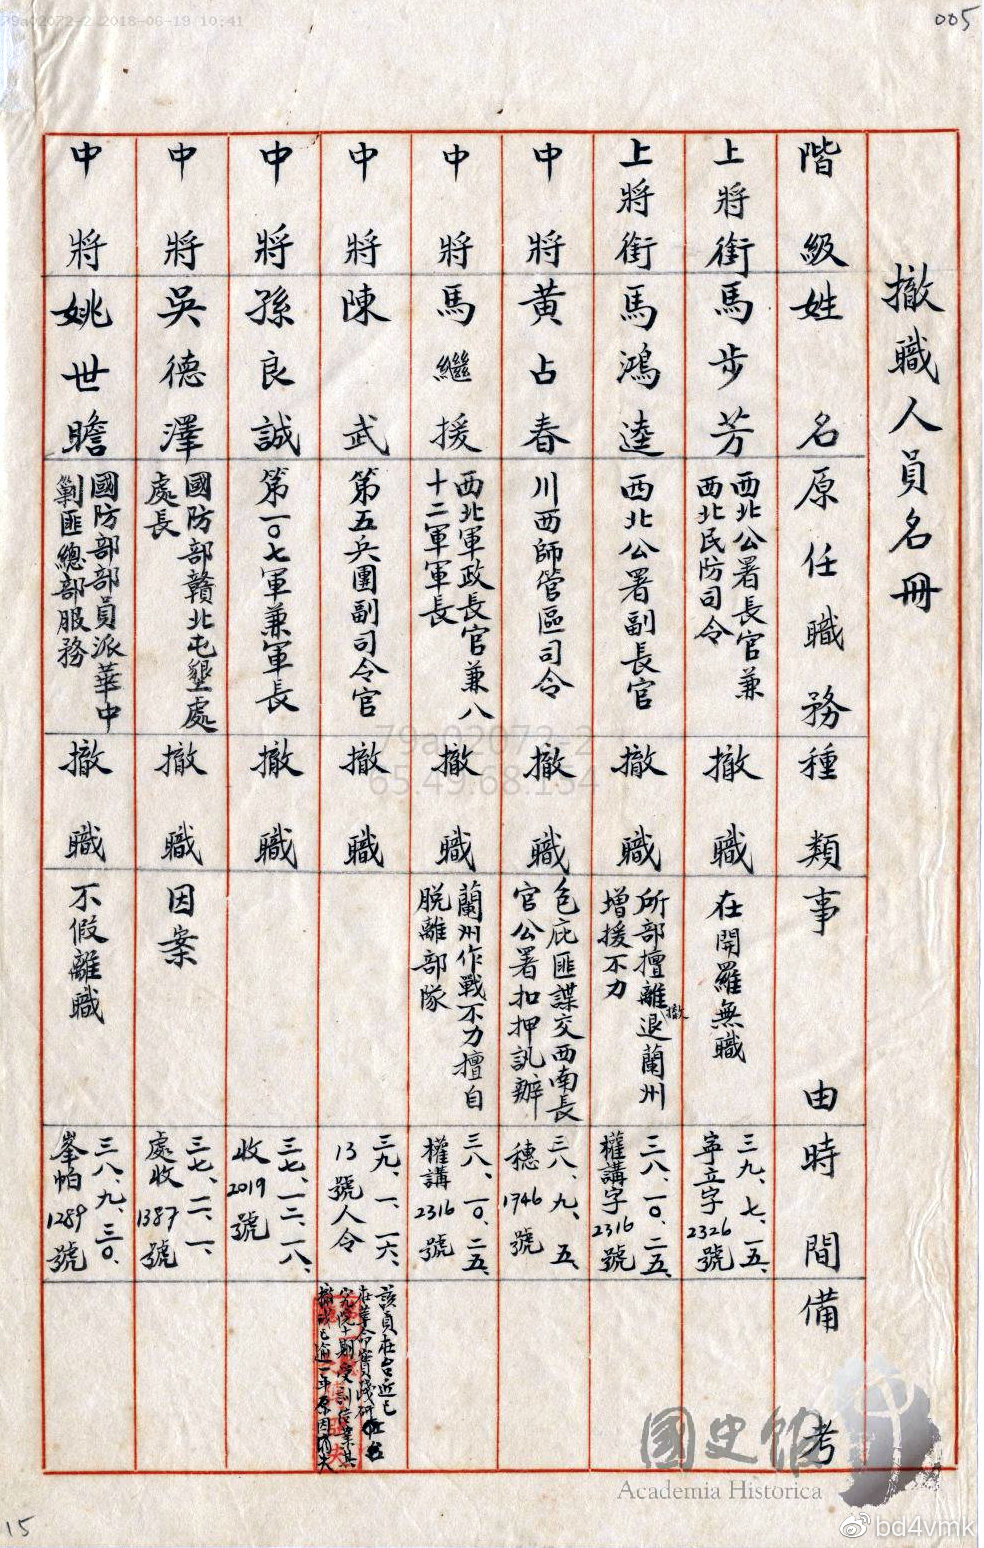 79a02072-2 2018-06-19 10:41
005
撤職人員名冊
階級
姓名
原任職務
種類
事由
時間
備考
上將銜
馬步芳
西北公署長官兼
西北民防司令
撤職
在開羅無職
三九、七、一五、
寧立字
2326號
上將銜
馬鴻逵
西北公署副長官
撤職
所部擅離撤退蘭州
增援不力
三八、一〇、二五、
權講字
2316號
中將
黃占春
川西師管區司令
撤職
包庇匪諜交西南長
官公署扣押訊辦
三八、九、五、
穗1746號
中將
馬繼援
西北軍政長官兼八
十二軍軍長
撤職
蘭州作戰不力擅自
脫離部隊
三八、一〇、二五、
權講
2316號
中將
陳武
第五兵團副司令官
撤職
三九、一、一六、
13號人令
該員在台近已
在革命實踐研
究院十期受訓結業其
撤職已逾一年原因消失
中將
孫良誠
第一〇七軍兼軍長
撤職
三七、一二、一八、
收2019號
中將
吳德澤
國防部贛北屯墾處
處長
撤職
因案
三七、二、一、
處收
1387號
中將
姚世瞻
國防部部員派華中
剿匪總部服務
撤職
不假離職
三八、九、三〇、
峯帕
1289號
79a02072-2
65.49.68.154
國史館
Academia Historica
15
bd4vmk